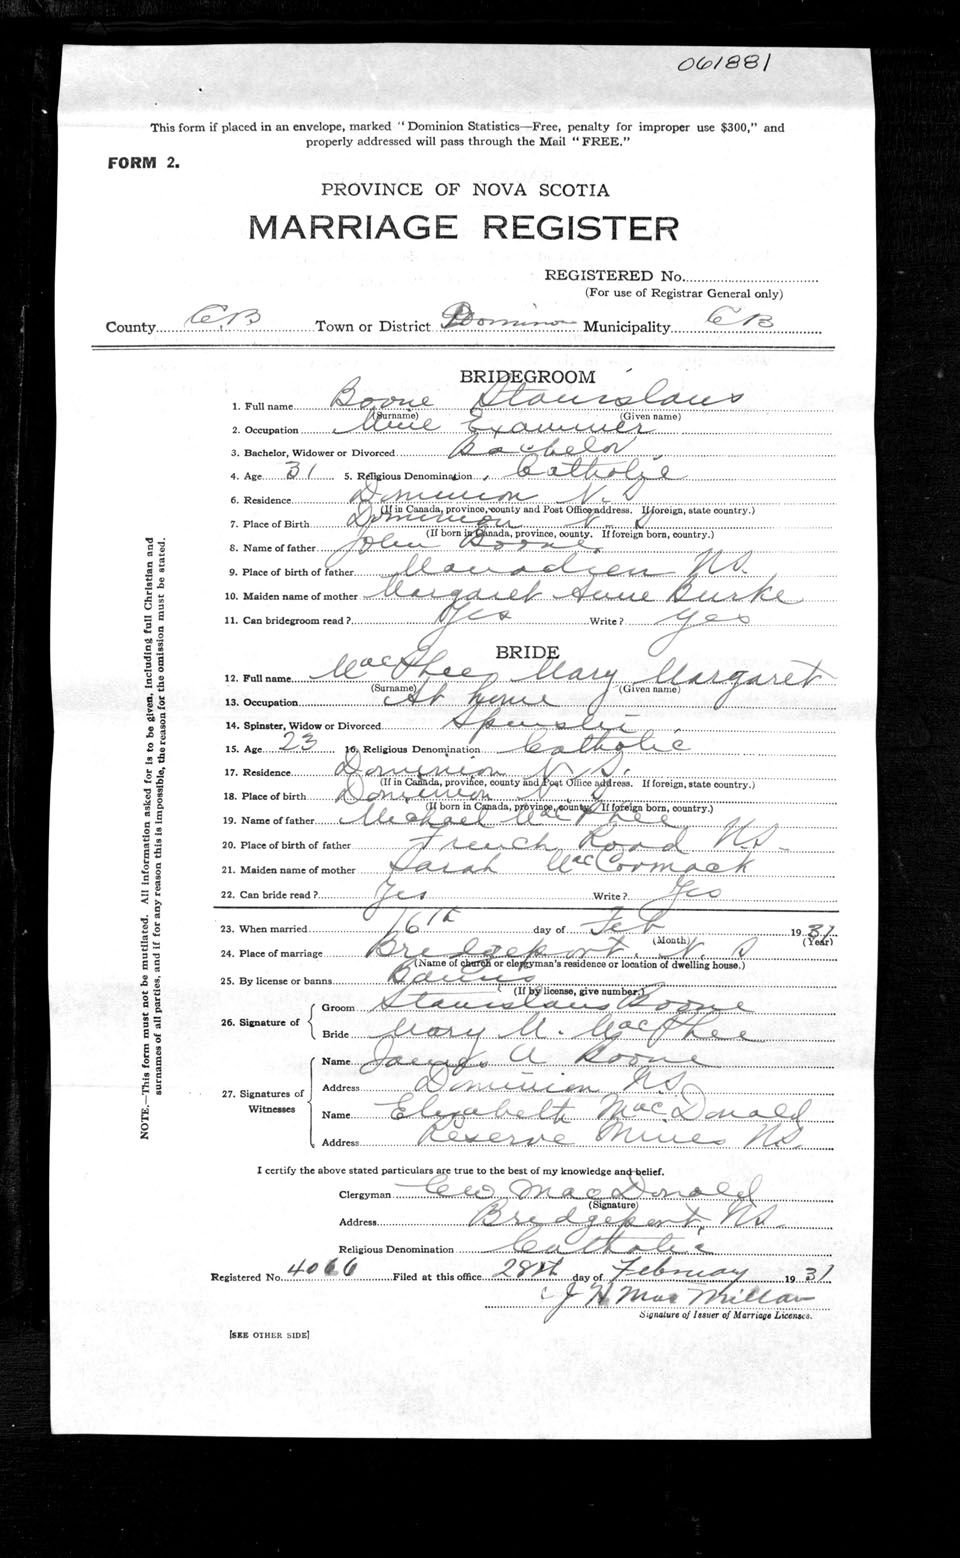 061881
This form if placed in an envelope, marked "Dominion Statistics—Free, penalty for improper use $300," and
properly addressed will pass through the Mail "FREE."
FORM 2.
PROVINCE OF NOVA SCOTIA
MARRIAGE REGISTER
REGISTERED No.
(For use of Registrar General only)
County CB Town or District Dominion Municipality CB
BRIDEGROOM
1. Full name Boone Stanislaus
(Surname) (Given name)
2. Occupation Mine Examiner
3. Bachelor, Widower or Divorced Bachelor
4. Age 31 5. Religious Denomination Catholic
6. Residence Dominion N.S
(If in Canada, province, county and Post Office address. If foreign, state country.)
7. Place of Birth Dominion N.S
(If born in Canada, province, county. If foreign born, country.)
8. Name of father John Boone
9. Place of birth of father NS.
10. Maiden name of mother Margaret Anne Burke
11. Can bridegroom read? Yes Write? Yes
BRIDE
12. Full name MacPhee Mary Margaret
(Surname) (Given name)
13. Occupation At home
14. Spinster, Widow or Divorced Spinster
15. Age 23 16. Religious Denomination Catholic
17. Residence Dominion N.S.
(If in Canada, province, county and Post Office address. If foreign, state country.)
18. Place of birth Dominion N.S
(If born in Canada, province, county. If foreign born, country.)
19. Name of father Michael MacPhee
20. Place of birth of father French Road N.S.
21. Maiden name of mother Sarah MacCormack
22. Can bride read? Yes Write? Yes
23. When married 16th day of Feb 1931
(Month) (Year)
24. Place of marriage Bridgeport, N.S
(Name of church or clergyman's residence or location of dwelling house.)
25. By license or banns Banns
(If by license, give number.)
26. Signature of Groom Stanislaus Boone
Bride Mary M. MacPhee
27. Signatures of Witnesses Name James A Boone
Address Dominion NS
Name Elizabeth MacDonald
Address Reserve Mines NS.
I certify the above stated particulars are true to the best of my knowledge and belief.
Clergyman CW MacDonald
(Signature)
Address Bridgeport, NS.
Religious Denomination Catholic
Registered No. 4066 Filed at this office 28th day of February 1931
J H MacMillan
Signature of Issuer of Marriage Licenses.
[SEE OTHER SIDE]
NOTE.—This form must not be mutilated. All information asked for is to be given, including full Christian and
surnames of all parties, and if for any reason this is impossible, the reason for the omission must be stated.